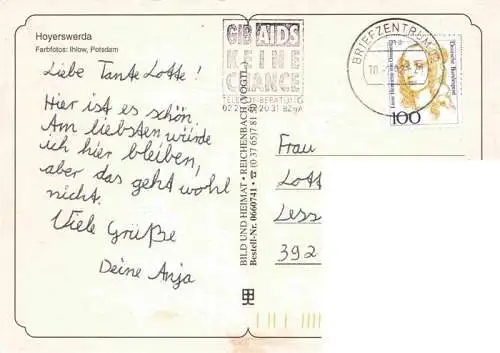 Hoyerswerda
Farbfotos: Ihlow, Potsdam
Liebe Tante Lotte!
Hier ist es schön.
Am liebsten würde
ich hier bleiben,
aber das geht wohl
nicht.
Viele Grüße
Deine Anja
BILD UND HEIMAT • REICHENBACH (VOGTL.)
Bestell-Nr. 0660741 • ☎ (0 37 65) 7 81
GIB AIDS
KEINE
CHANCE
BRIEFZENTRUM
Deutsche Bundespost
100
Frau
Lott
Less
392